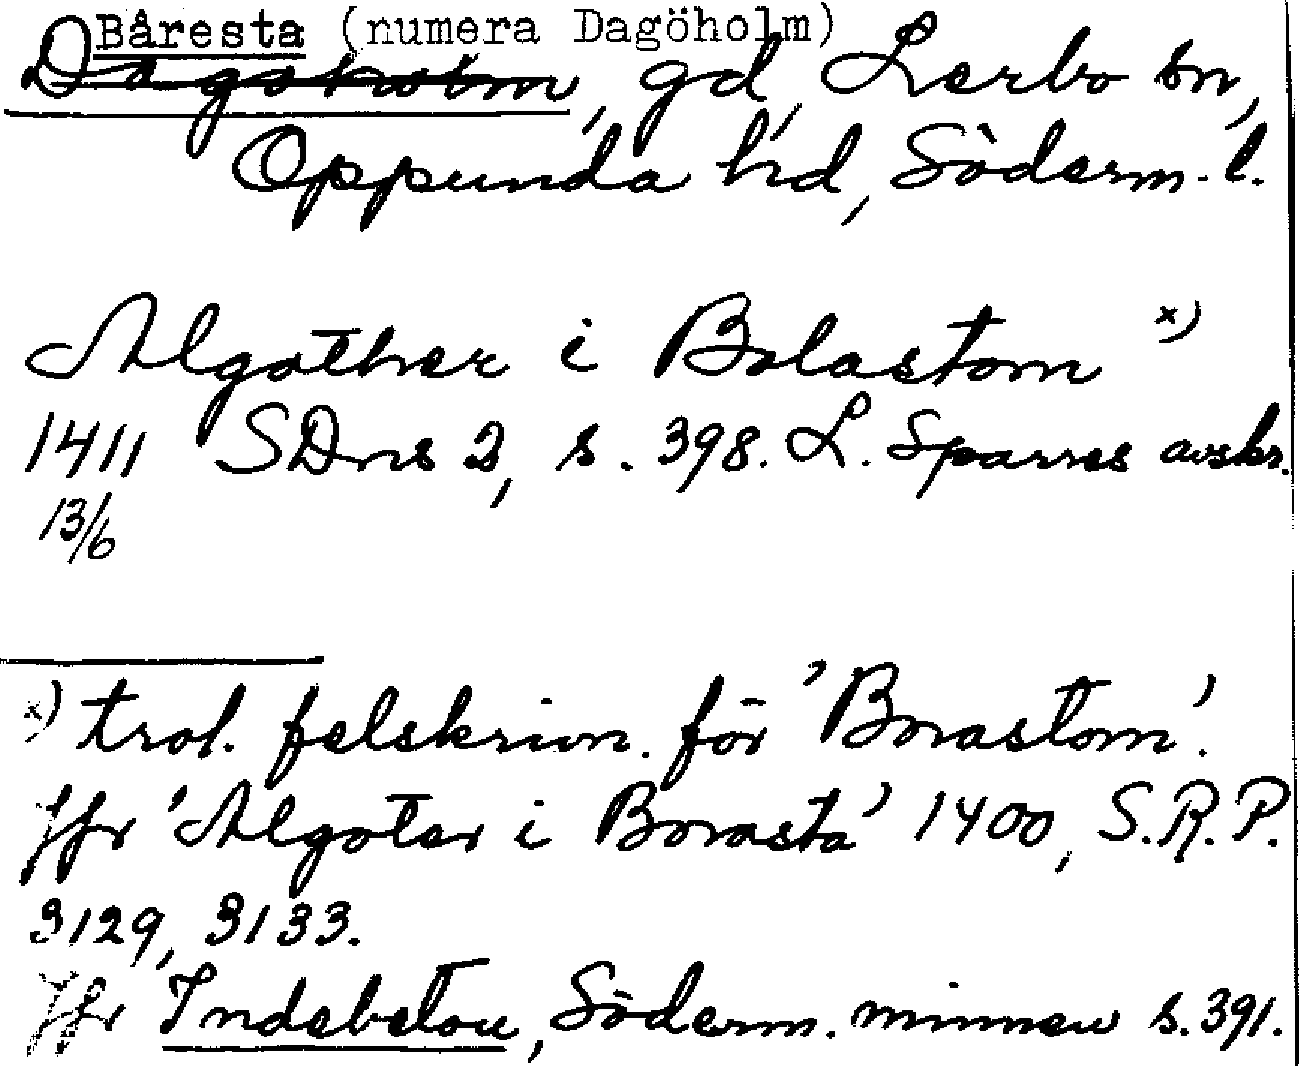 Båresta (numera Dagöholm)
Dagöholm, gd, Lerbo sn,
Oppunda hd, Söderm. l.
Algother i Bolastom x)
1411 SDns 2, s. 398. L. Sparres avskr.
13/6
x) trol. felskrivn. för 'Borastom'.
Jfr 'Algoter i Borasta' 1400, S.R.P.
3129, 3133.
Jfr Indebetou, Söderm. minnen s. 391.